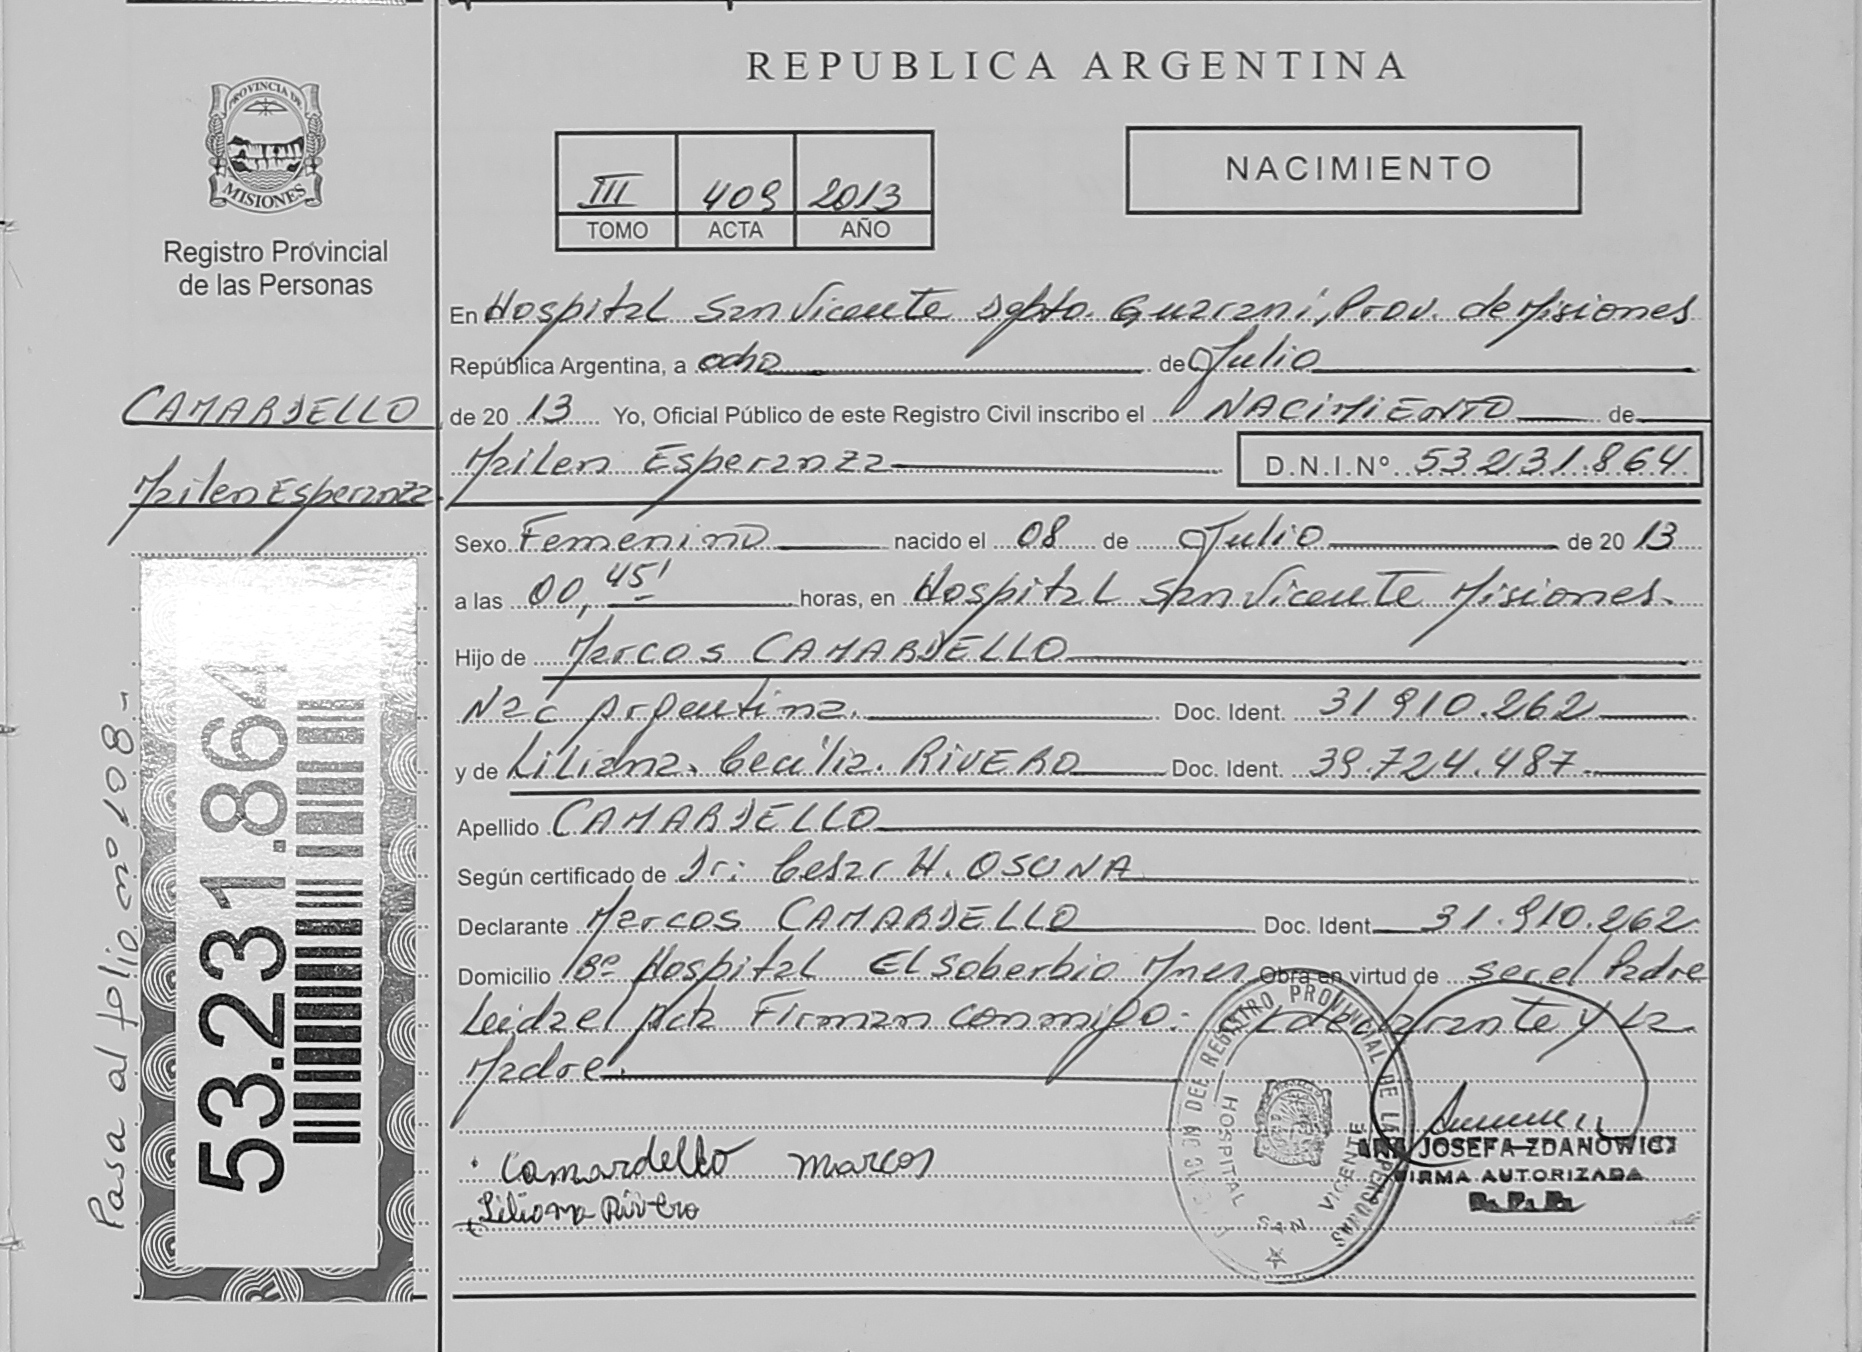 REPUBLICA ARGENTINA
PROVINCIA DE
MISIONES
Registro Provincial
de las Personas
III 409 2013
TOMO ACTA AÑO
NACIMIENTO
CAMARDELLO
Mailen Esperanza
Pasa al folio nº 108-
53.231.864
En Hospital San Vicente Dpto. Guarani, Prov. de Misiones
República Argentina, a ocho de Julio
de 2013 Yo, Oficial Público de este Registro Civil inscribo el NACIMIENTO de
Mailen Esperanza D.N.I.Nº 53.231.864
Sexo Femenino nacido el 08 de Julio de 2013
a las 00,45' horas, en Hospital San Vicente Misiones.
Hijo de Marcos CAMARDELLO
Nac Argentina. Doc. Ident. 31.910.262
y de Liliana. Cecilia. RIVERO Doc. Ident. 39.724.487
Apellido CAMARDELLO
Según certificado de Dr: Cesar H. OSUNA
Declarante Marcos CAMARDELLO Doc. Ident. 31.910.262
Domicilio Bº Hospital El Soberbio Mnes Obra en virtud de ser el Padre
Leida el Acta Firman conmigo: El declarante y La
Madre.
Camardello Marcos
Liliana Rivero
DEL REGISTRO PROVINCIAL DE LAS PERSONAS
HOSPITAL
SAN VICENTE
ANA JOSEFA ZDANOWICZ
FIRMA AUTORIZADA
R.P.P.